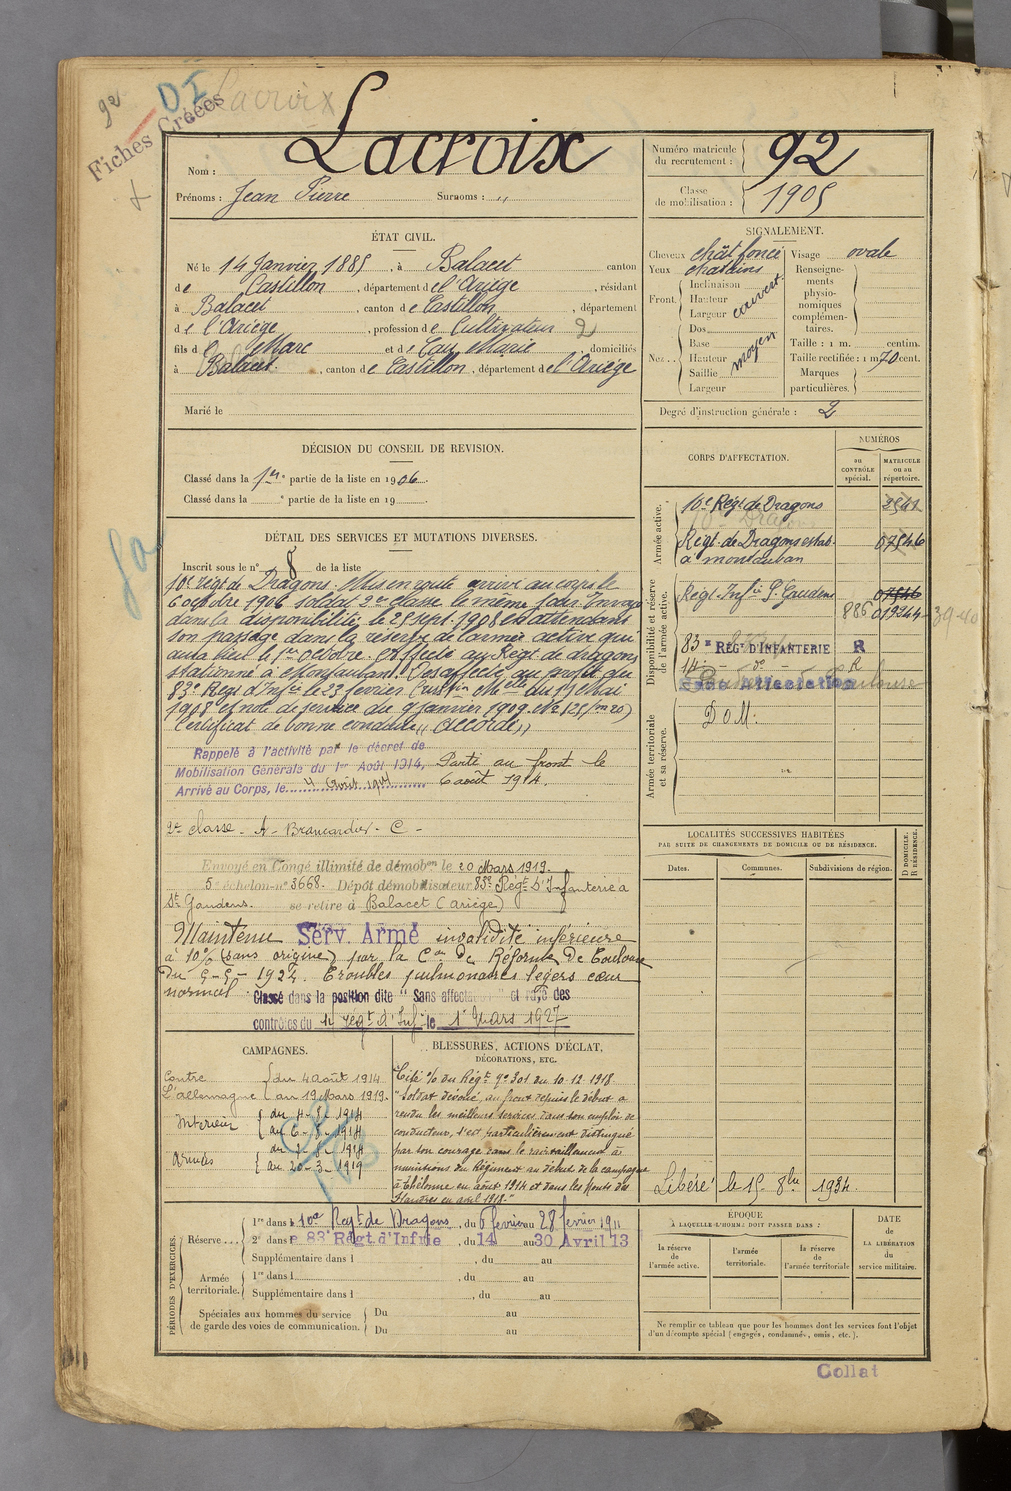 92
DI
Lacroix
Fiches Créées
Nom : Lacroix
Prénoms : Jean Pierre Surnoms : "
Numéro matricule du recrutement : 92
Classe de mobilisation : 1905
ÉTAT CIVIL.
Né le 14 Janvier 1885, à Balacet canton
de Castillon, département de l'Ariège, résidant
à Balacet, canton de Castillon, département
de l'Ariège, profession de Cultivateur 2
fils de Marc et de Cau Marie domiciliés
à Balacet, canton de Castillon, département de l'Ariège
Marié le
SIGNALEMENT.
Cheveux chât foncé Visage ovale
Yeux chatains
Front. Inclinaison Hauteur Largeur couvert
Nez Dos Base Hauteur Saillie Largeur moyen
Renseignements physionomiques complémentaires.
Taille : 1 m. centim.
Taille rectifiée : 1 m 70 cent.
Marques particulières.
Degré d'instruction générale : 2
DÉCISION DU CONSEIL DE REVISION.
Classé dans la 1re partie de la liste en 1906.
Classé dans la e partie de la liste en 19
DÉTAIL DES SERVICES ET MUTATIONS DIVERSES.
Inscrit sous le n° 8 de la liste
10e régt de Dragons. Mis en route arrivé au corps le
6 octobre 1906 soldat 2e classe le même jour. Envoyé
dans la disponibilité le 25 sept. 1908 en attendant
son passage dans la réserve de l'armée active qui
aura lieu le 1er Octobre. Affecté au Régt de dragons
stationné à Montauban. Désaffecté au profit du
83e Régt d'Infie le 23 février
1908 et note de service du 9 janvier 1909
Certificat de bonne conduite "Accordé"
Rappelé à l'activité par le décret de
Mobilisation Générale du 1er Août 1914,
Arrivé au Corps, le 4 Août 1914
Parti au front le
6 août 1914.
2e classe - A - Brancardier - C -
Envoyé en Congé illimité de démobon le 20 Mars 1919.
5e échelon n° 3668. Dépôt démobilisateur 83e Régt d'Infanterie à
St Gaudens. se retire à Balacet (Ariège)
Maintenu Serv. Armé invalidité inférieure
à 10% (sans origine) par la Con de Réforme de Toulouse
du 9-9-1924. Troubles pulmonaires légers cœur
normal. Classé dans la position dite "Sans affectation" et rayé des
contrôles du 14 régt d'Inf le 1r Mars 1927
CORPS D'AFFECTATION.
NUMÉROS
au CONTRÔLE spécial.
MATRICULE ou au répertoire.
Armée active.
10e Régt de Dragons
Régt de Dragons stat. 07546
à Montauban
Disponibilité et réserve de l'armée active.
Régt Infie St Gaudens 07546
886 019244
83e RÉGt D'INFANTERIE R
14e - do - R
Sans Affectation
Armée territoriale et sa réserve.
DOM:
LOCALITÉS SUCCESSIVES HABITÉES
PAR SUITE DE CHANGEMENTS DE DOMICILE OU DE RÉSIDENCE.
Dates. Communes. Subdivisions de région. D DOMICILE. R RÉSIDENCE.
Libéré le 15 8bre 1934
CAMPAGNES.
Contre l'Allemagne du 4 août 1914 au 19 Mars 1919.
Intérieur du 4-8-1914 au 6-8-1914
Armées du 7-8-1914 au 20-3-1919
BLESSURES, ACTIONS D'ÉCLAT,
DÉCORATIONS, ETC.
Cité % du Régt n° 301 du 10.12.1918
"Soldat dévoué, au front depuis le début a
rendu les meilleurs services dans son emploi de
conducteur, s'est particulièrement distingué
par son courage dans le ravitaillement en
munitions du Régiment au début de la campagne
à Thélonne en août 1914 et dans les Monts des
Flandres en avril 1918."
PÉRIODES D'EXERCICES.
Réserve... 1re dans le 10e Régt de Dragons, du 6 février au 28 février 1911
2e dans le 83e Régt d'Infrie, du 14 au 30 Avril 13
Supplémentaire dans l , du au
Armée territoriale. 1re dans l , du au
Supplémentaire dans l , du au
Spéciales aux hommes du service de garde des voies de communication. Du au
Du au
ÉPOQUE
À LAQUELLE L'HOMME DOIT PASSER DANS :
la réserve de l'armée active.
l'armée territoriale.
la réserve de l'armée territoriale
DATE de LA LIBÉRATION du service militaire.
Ne remplir ce tableau que pour les hommes dont les services font l'objet
d'un décompte spécial (engagés, condamnés, omis, etc.).
Collat